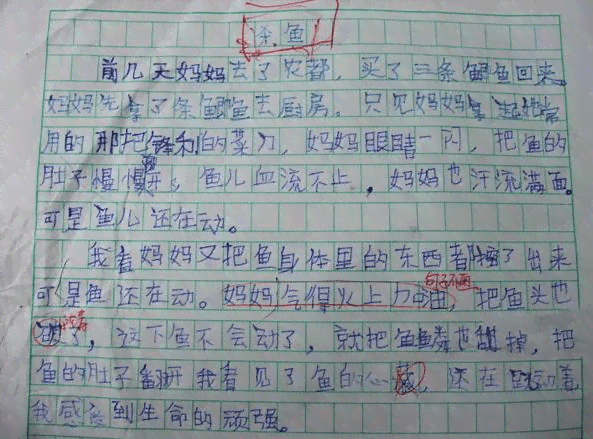 杀鱼
前几天妈妈去了农都,买了三条鲫鱼回来。
妈妈先拿了条鲫鱼去厨房。只见妈妈拿起她常
用的那把锋利的菜刀,妈妈眼睛一闪,把鱼的
肚子慢慢割开。鱼儿血流不止,妈妈也汗流满面。
可是鱼儿还在动。
我看妈妈又把鱼身体里的东西都挖了出来
可是鱼还在动。妈妈气得火上加油,把鱼头也
了,这下鱼不会动了,就把鱼鳞也刮掉,把
鱼的肚子翻开我看见了鱼的心藏,还在跳动着
我感受到生命的顽强。